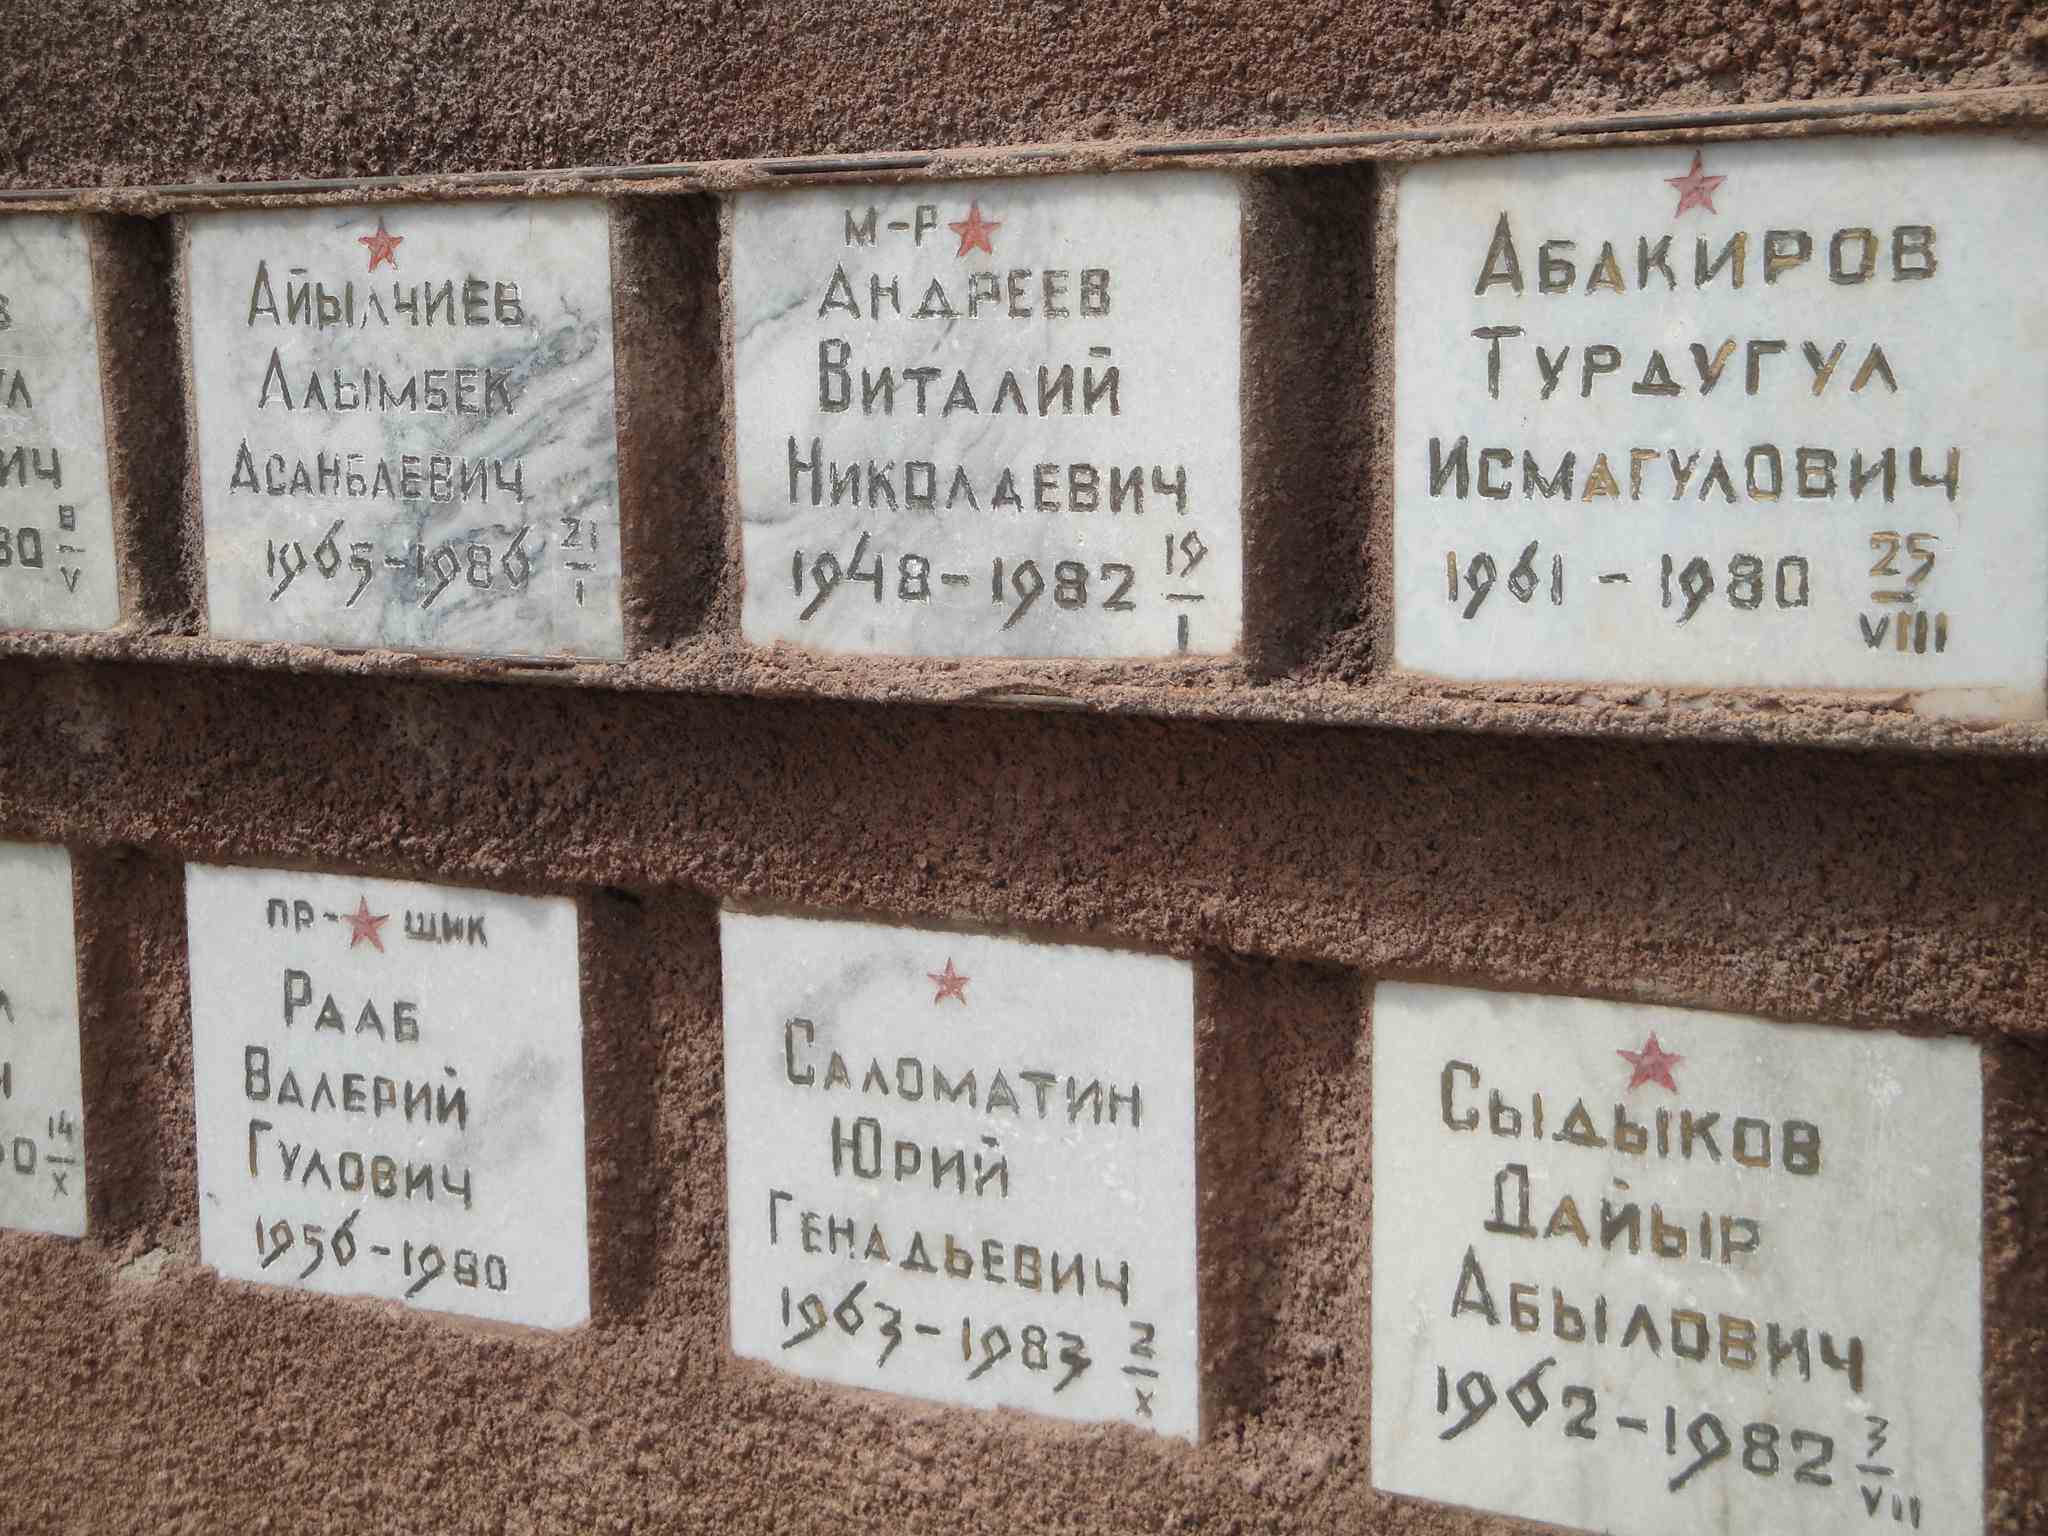 м-р
Айылчиев
Алымбек
Асанбаевич
1965-1986 21/I
Андреев
Виталий
Николаевич
1948-1982 19/I
Абакиров
Турдугул
Исмагулович
1961-1980 25/VIII
8/V
14/X
пр-щик
Рааб
Валерий
Гулович
1956-1980
Саломатин
Юрий
Генадьевич
1963-1983 2/X
Сыдыков
Дайыр
Абылович
1962-1982 3/VII